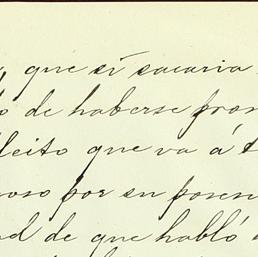 que sí sacaria
de haberse pron
leito que va á t
oso por su poren
d de que habló